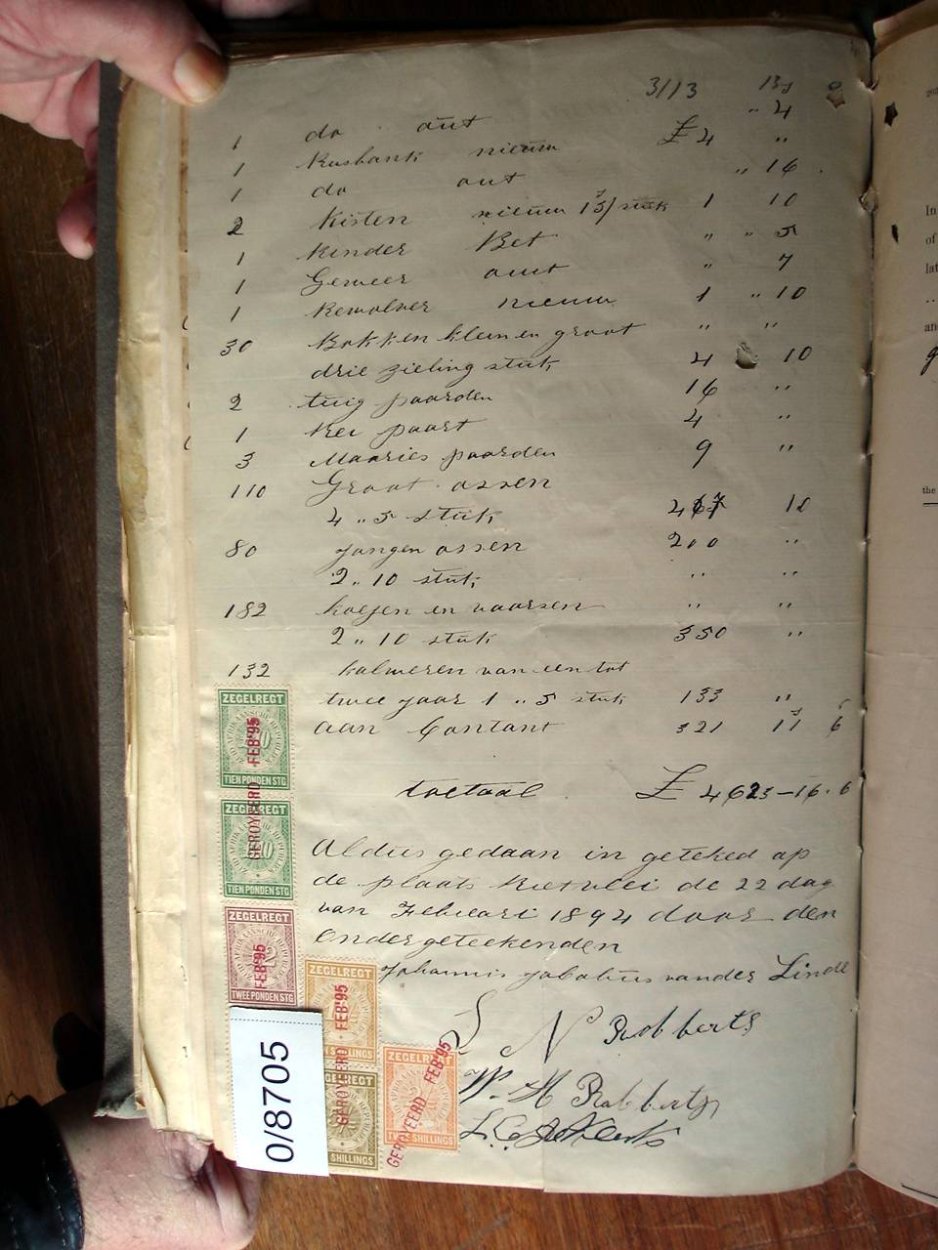 3113 13
1 do out " 4
1 Rusbank nieuw £ 4 "
1 do out " 16
2 Kisten nieuw 15/stuk 1 10
1 Kinder Bet " " 5
1 Geweer out " 7
1 Rewolwer nieuw 1 " 10
30 Bokken klein en groot " "
drie zieling stuk 4 10
2 tuig paarden 16 "
1 Rei paart 4 "
3 Maaries paarden 9 "
110 Groot ossen
4 " 5 stuk 467 10
80 Jongen ossen 200 "
2 " 10 stuk " "
182 koejen en vaarsen " "
2 " 10 stuk 350 "
132 kalweren van een tot
twee jaar 1 " 5 stuk 133 "
aan Contant 321 17 6
toetaal £ 4623-16.6
Aldus gedaan in geteked op
de plaats Rietvlei de 22 dag
van Februari 1894 door den
Ondergeteekenden
Johannis Jobatius vander Linde
S N Robberts
W. H Robberts
L. C.
ZEGELREGT
TIEN PONDEN STG
ZEGELREGT
TIEN PONDEN STG
ZEGELREGT
TWEE PONDEN STG
ZEGELREGT
SHILLINGS
ZEGELREGT
SHILLINGS
GEROYEERD FEB'95
FEB'95
GEROYEERD FEB'95
GEROYEERD FEB'95
0/8705
In
of
lat
an
the